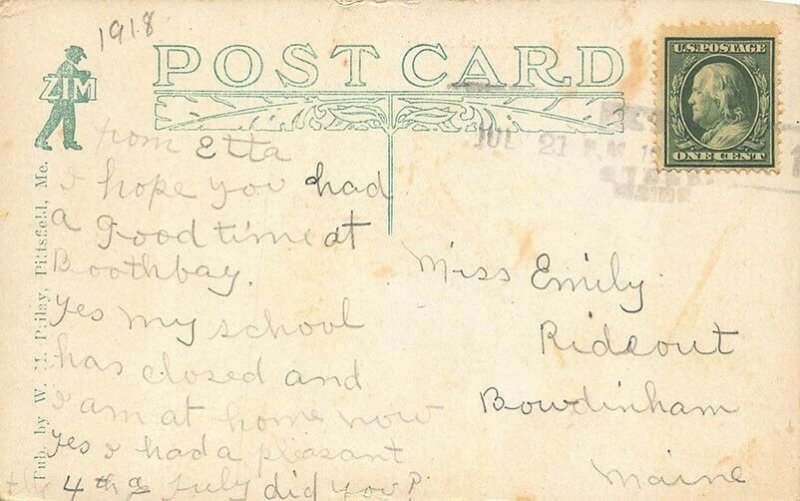 1918
POST CARD
ZIM
U.S. POSTAGE
ONE CENT
JUL 21 P.M
MAINE
from Etta
I hope you had
a good time at
Boothbay.
yes my school
has closed and
I am at home now
yes I had a pleasant
the 4th of July did you?
Miss Emily
Rideout
Bowdinham
Maine
Pub. by W. H. Philay, Pittsfield, Me.